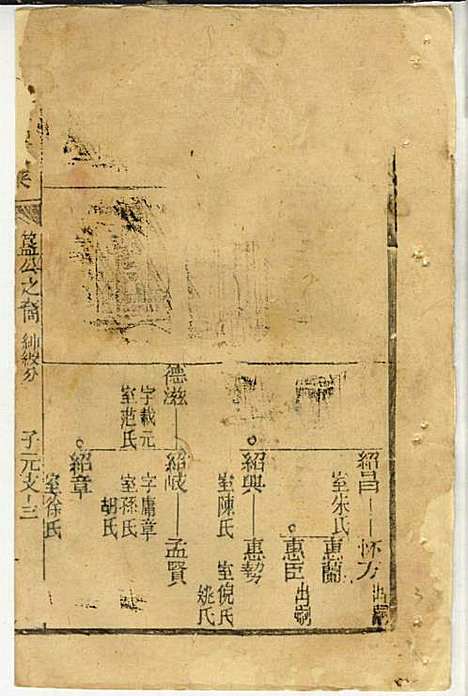 紹昌——怀
室朱氏
出嗣
惠蘭
惠臣
出嗣
紹興——惠勢
室陳氏
室倪氏
姚氏
德滋——紹岐——孟賢
字載元
室范氏
字庸章
室孫氏
胡氏
紹章
室徐氏
公之裔
子元支
三